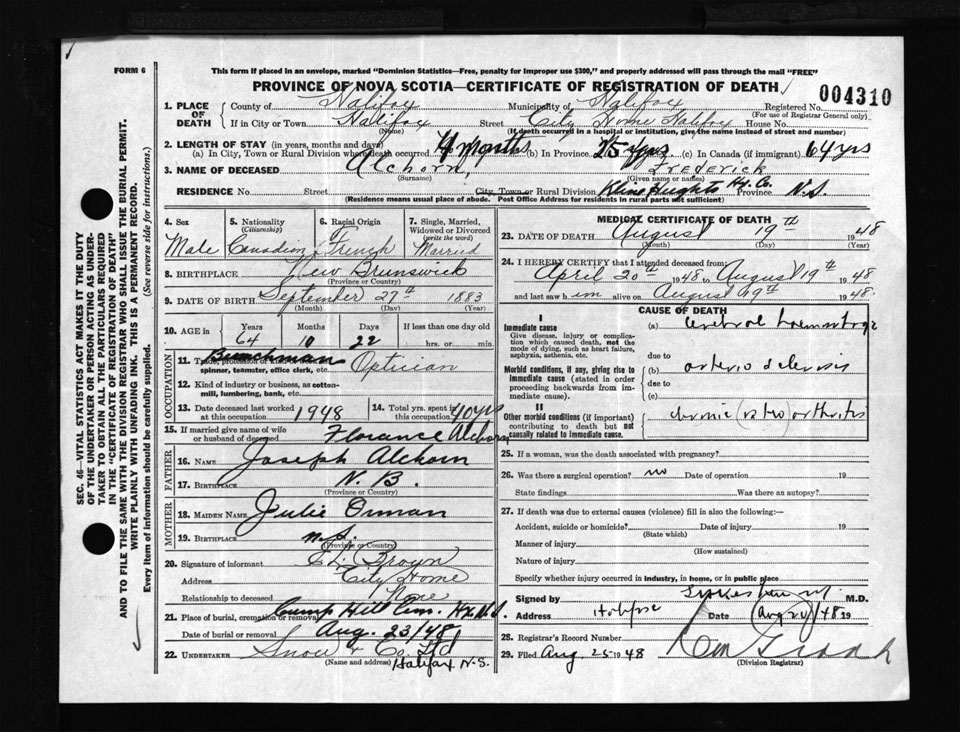 FORM 6
This form if placed in an envelope, marked "Dominion Statistics—Free, penalty for improper use $300," and properly addressed will pass through the mail "FREE"
PROVINCE OF NOVA SCOTIA—CERTIFICATE OF REGISTRATION OF DEATH
004310
1. PLACE OF DEATH County of Halifax Municipality of Halifax Registered No.
(For use of Registrar General only)
If in City or Town Halifax Street City Home Halifax House No.
(Name) (If death occurred in a hospital or institution, give the name instead of street and number)
2. LENGTH OF STAY (in years, months and days)
(a) In City, Town or Rural Division where death occurred 4 months (b) In Province 25 yrs. (c) In Canada (if immigrant) 64 yrs
3. NAME OF DECEASED Alchorn, Frederick
(Surname) (Given name or names)
RESIDENCE No. Street City, Town or Rural Division Kline Heights Hx. Co. Province N.S.
(Residence means usual place of abode. Post Office Address for residents in rural parts not sufficient)
4. Sex Male
5. Nationality (Citizenship) Canadian
6. Racial Origin French
7. Single, Married, Widowed or Divorced (write the word) Married
8. BIRTHPLACE New Brunswick
(Province or Country)
9. DATE OF BIRTH September 27th 1883
(Month) (Day) (Year)
10. AGE in Years Months Days If less than one day old
64 10 22 hrs. or min.
OCCUPATION
11. Trade, profession or kind of work as spinner, teamster, office clerk, etc. Optician
12. Kind of industry or business, as cotton-mill, lumbering, bank, etc.
13. Date deceased last worked at this occupation 1948
14. Total yrs. spent in this occupation 40 yrs
15. If married give name of wife or husband of deceased Florance Alchorn
FATHER
16. NAME Joseph Alchorn
17. BIRTHPLACE N. B.
(Province or Country)
MOTHER
18. MAIDEN NAME Julie Orman
19. BIRTHPLACE N.S.
(Province or Country)
20. Signature of informant Brown
Address City Home
Relationship to deceased None
21. Place of burial, cremation or removal Camp Hill Cem. Hx. N.S.
Date of burial or removal Aug. 23/48
22. UNDERTAKER Snow & Co. Ltd
(Name and address) Halifax N.S.
MEDICAL CERTIFICATE OF DEATH
23. DATE OF DEATH August 19th 1948
(Month) (Day) (Year)
24. I HEREBY CERTIFY that I attended deceased from:
April 20th 1948 to August 19th 1948
and last saw him alive on August 19th 1948.
CAUSE OF DEATH
I
Immediate cause
Give disease, injury or complication which caused death, not the mode of dying, such as heart failure, asphyxia, asthenia, etc.
(a) cerebral haemorrhage
due to
Morbid conditions, if any, giving rise to immediate cause (stated in order proceeding backwards from immediate cause).
(b) arterio sclerosis
due to
(c)
II
Other morbid conditions (if important) contributing to death but not causally related to immediate cause.
chronic arthritis
25. If a woman, was the death associated with pregnancy?
26. Was there a surgical operation? no Date of operation 19
State findings Was there an autopsy?
27. If death was due to external causes (violence) fill in also the following:—
Accident, suicide or homicide? Date of injury 19
(State which)
Manner of injury
(How sustained)
Nature of injury
Specify whether injury occurred in industry, in home, or in public place
Signed by M.D.
Address Halifax Date Aug 20/48 19
28. Registrar's Record Number
29. Filed Aug 25 1948
(Division Registrar)
SEC. 46—VITAL STATISTICS ACT MAKES IT THE DUTY OF THE UNDERTAKER OR PERSON ACTING AS UNDERTAKER TO OBTAIN ALL THE PARTICULARS REQUIRED IN THE "CERTIFICATE OF REGISTRATION OF DEATH" AND TO FILE THE SAME WITH THE DIVISION REGISTRAR WHO SHALL ISSUE THE BURIAL PERMIT.
WRITE PLAINLY WITH UNFADING INK. THIS IS A PERMANENT RECORD.
Every item of information should be carefully supplied. (See reverse side for instructions.)